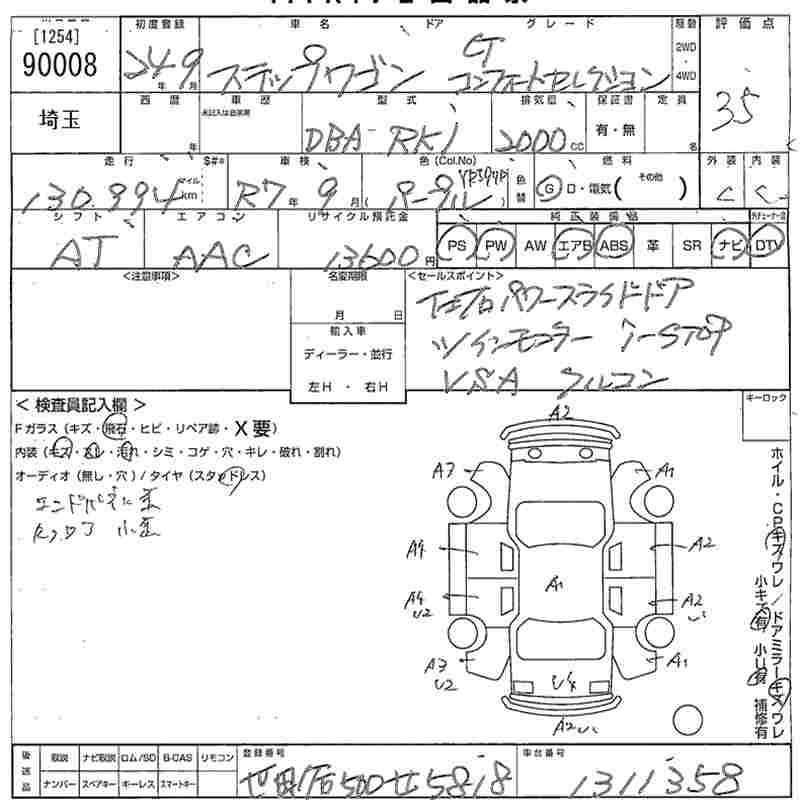 [1254]
90008
初度登録 車名 ドア グレード 駆動 評価点
24年9月 ステップワゴン GT コンフォートセレクション 2WD・4WD 35
埼玉
西暦 車歴 型式 排気量 保証書 定員
年 未記入は自家用 DBA-RK1 2000cc 有・無 名
走行 $#* 車検 色(Col.No) 燃料 外装 内装
130,994 マイル km R7年9月 (パープル) 色替 G D・電気( その他 ) C C
シフト エアコン リサイクル預託金 純正装備品
AT AAC 13600円 PS PW AW エアB ABS 革 SR ナビ DTV
<注意事項> 名変期限 <セールスポイント>
月 日
輸入車
ディーラー・並行
左H・右H
両パワースライドドア
ツインモニター I-STOP
VSA クルコン
<検査員記入欄>
Fガラス(キズ・飛石・ヒビ・リペア跡・X要)
内装(キズ・スレ・汚れ・シミ・コゲ・穴・キレ・破れ・割れ)
オーディオ(無し・穴)/タイヤ(スタッドレス)
小歪
キーロック
ホイル・CPキズワレ/ドアミラーキズワレ
小キズ有 小U有 補修有
A2
A3 A1
A4 A2
A1
A4 U2 A2
A3 U2 A1
U4
A2
後送品 取説 ナビ取説 ロム/SD B-CAS リモコン 登録番号 車台番号
ナンバー スペアキー キーレス スマートキー 500 せ 5818 1311358